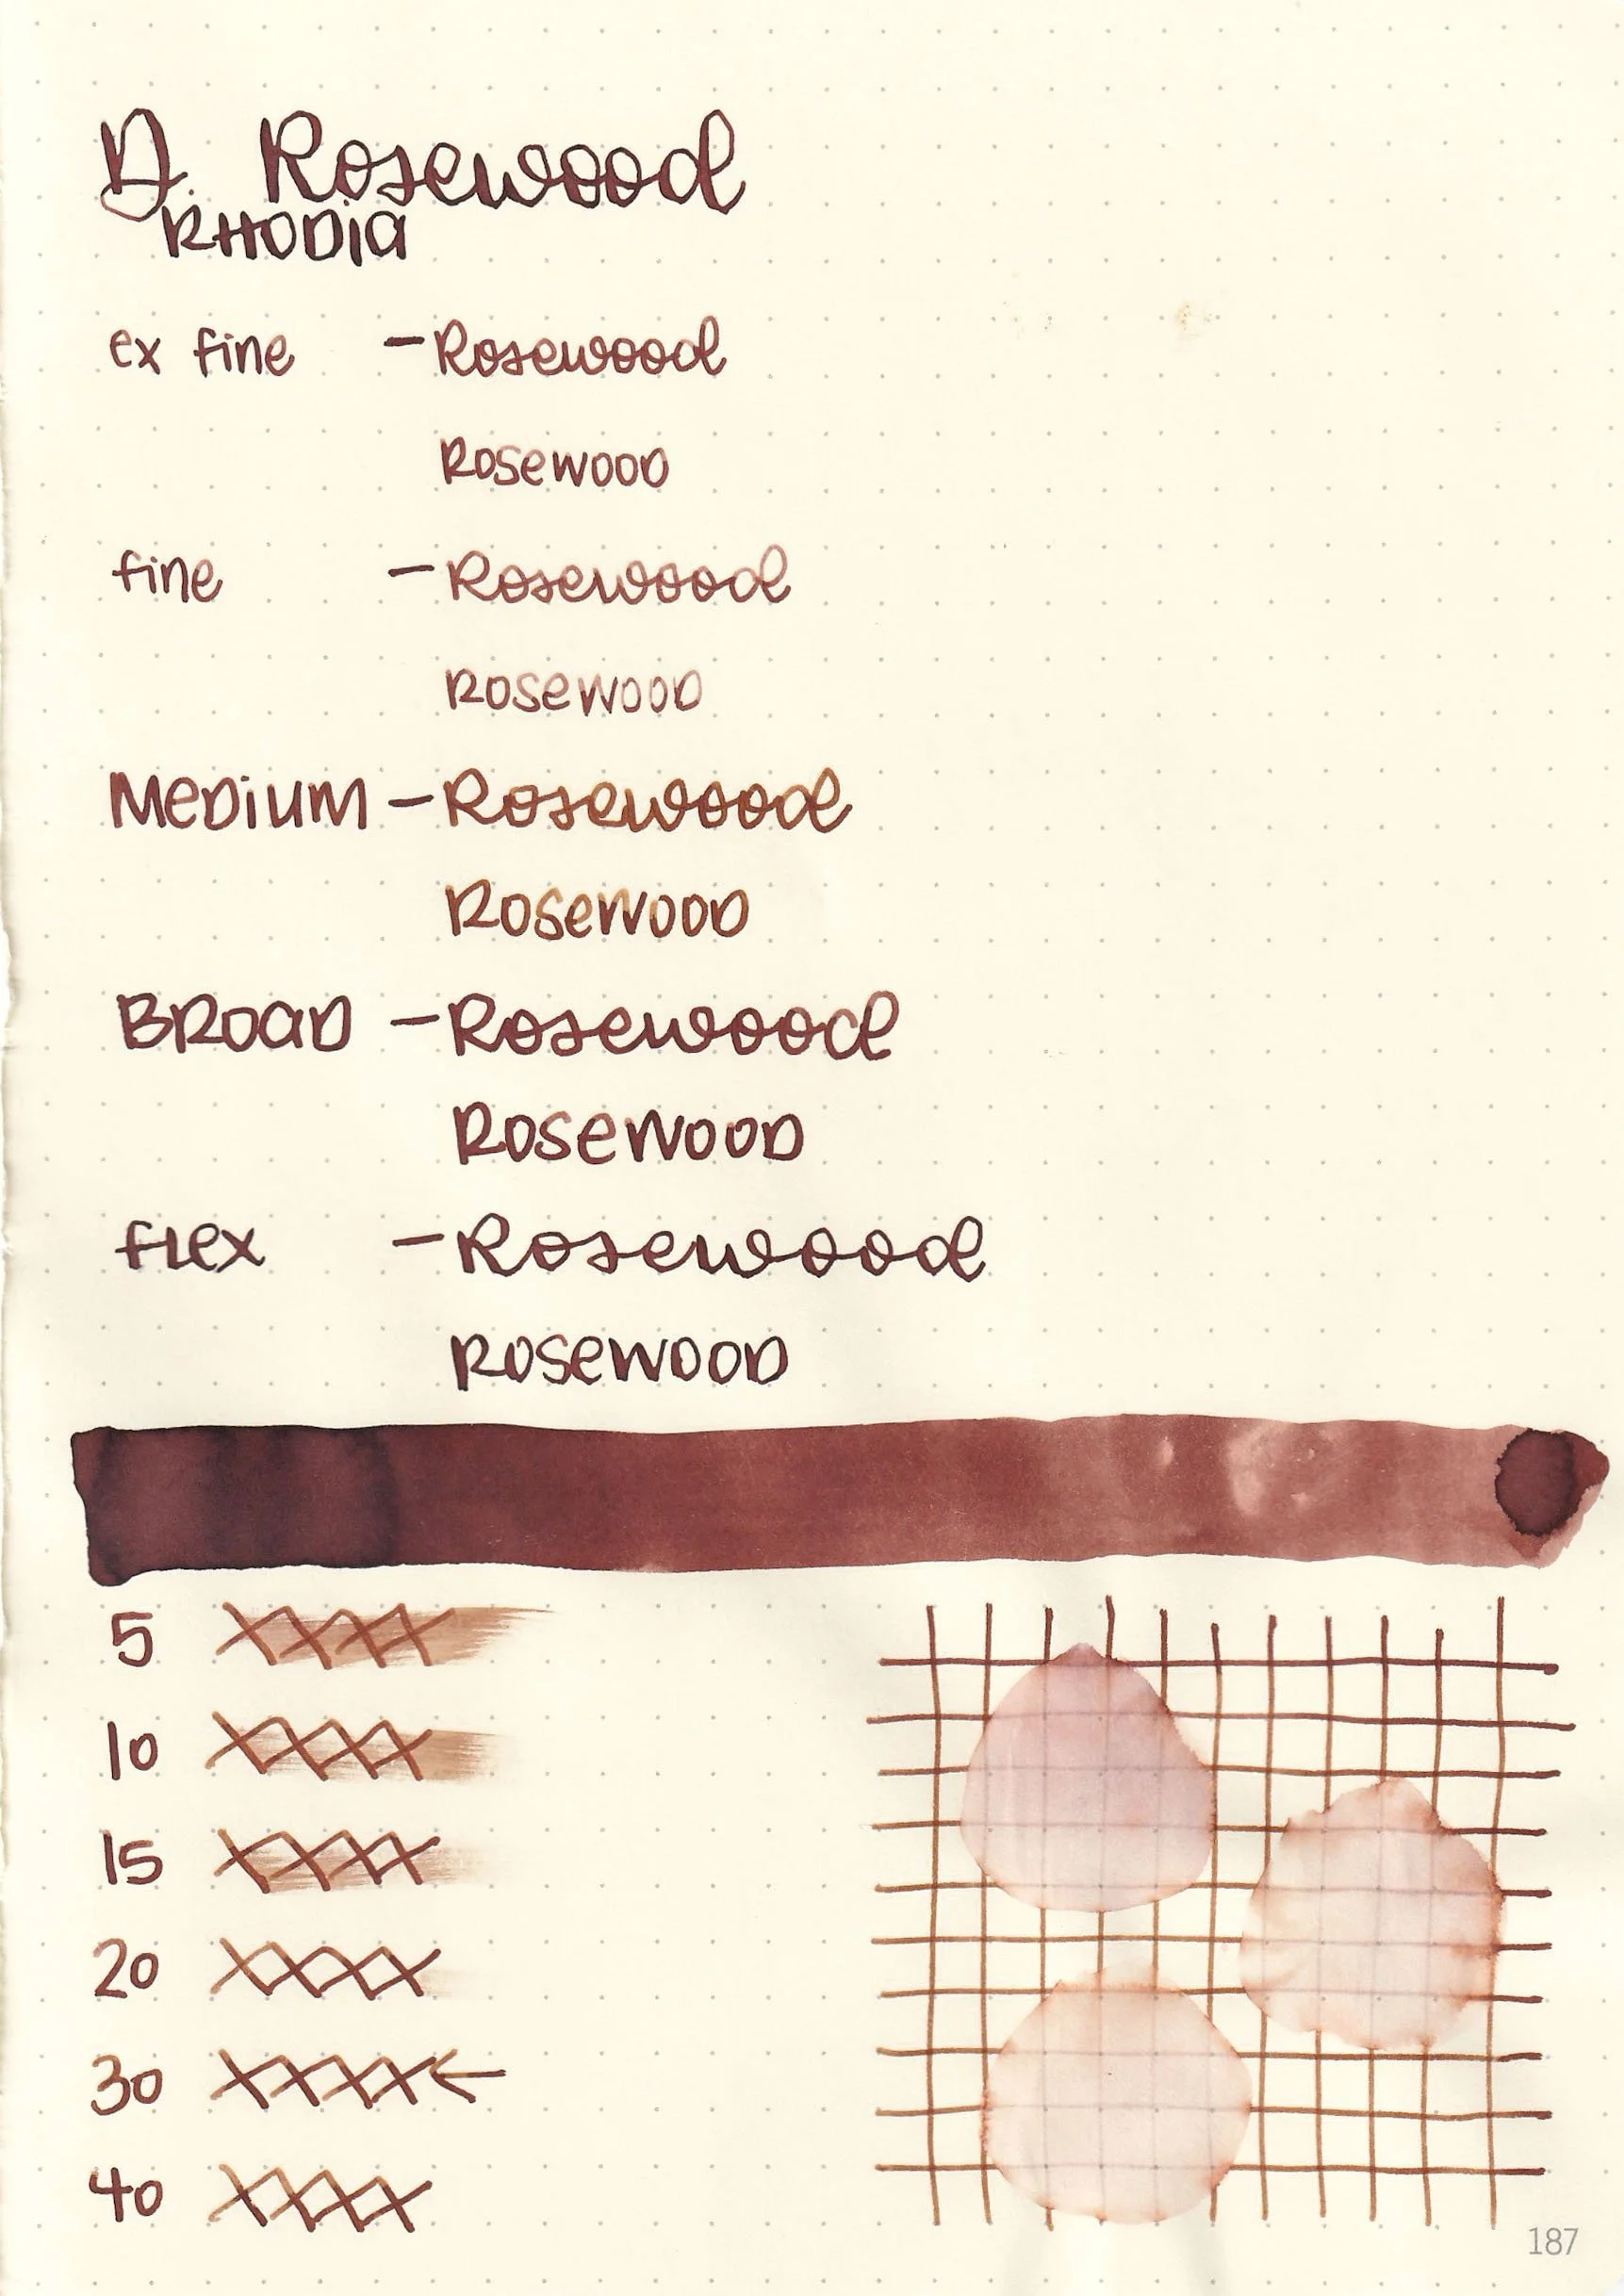 D. Rosewood
RHODIA
ex fine - Rosewood
Rosewood
fine - Rosewood
Rosewood
Medium - Rosewood
Rosewood
BROAD - Rosewood
Rosewood
flex - Rosewood
Rosewood
5 XXXX
10 XXXX
15 XXXX
20 XXXX
30 XXXX ←
40 XXXX
187